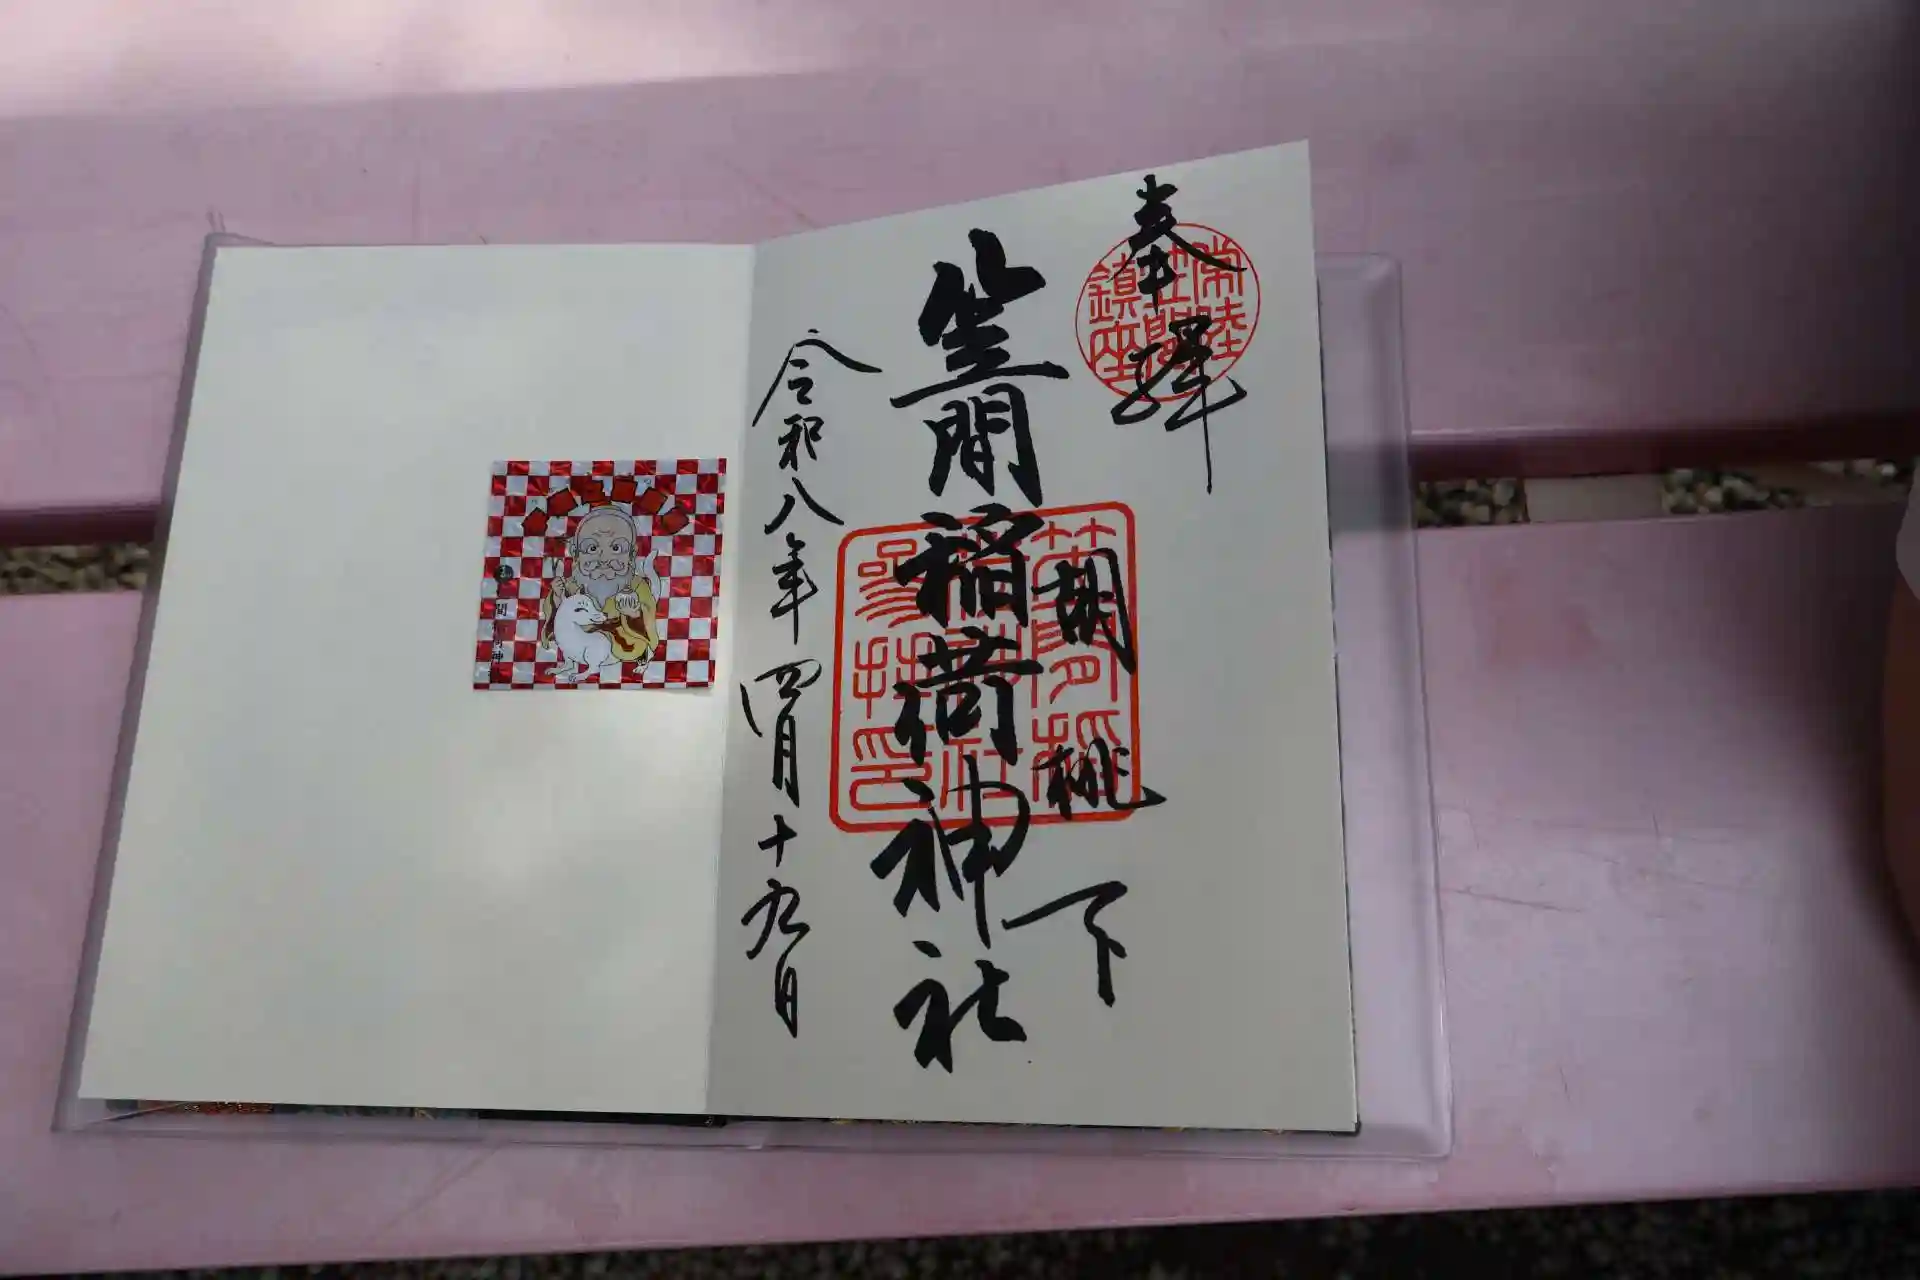 奉拝
常陸
笠間
鎮座
胡桃下
笠間稲荷神社
笠間稲
荷神社
参拝印
令和八年四月十九日